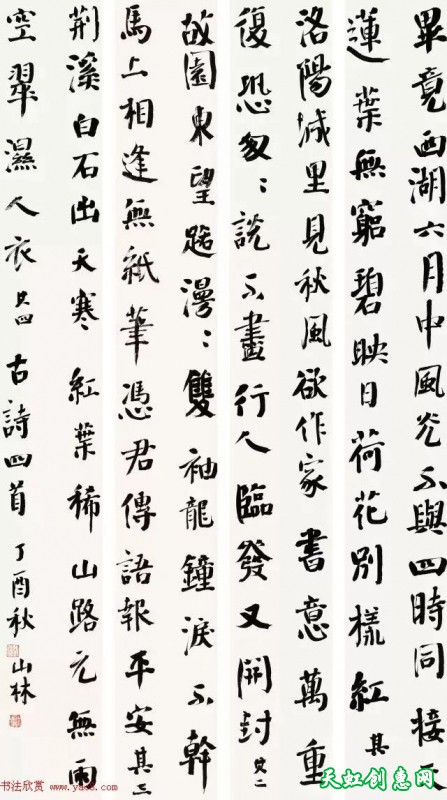 畢竟西湖六月中風光不與四時同接天
蓮葉無窮碧映日荷花別樣紅其一
洛陽城里見秋風欲作家書意萬重
復恐匆:說不盡行人臨發又開封其二
故園東望路漫:雙袖龍鐘淚不幹
馬上相逢無紙筆憑君傳語報平安其三
荆溪白石出天寒紅葉稀山路元無雨
空翠濕人衣其四古詩四首丁酉秋山林
书法欣赏
www.yac8.com
天虹创惠网